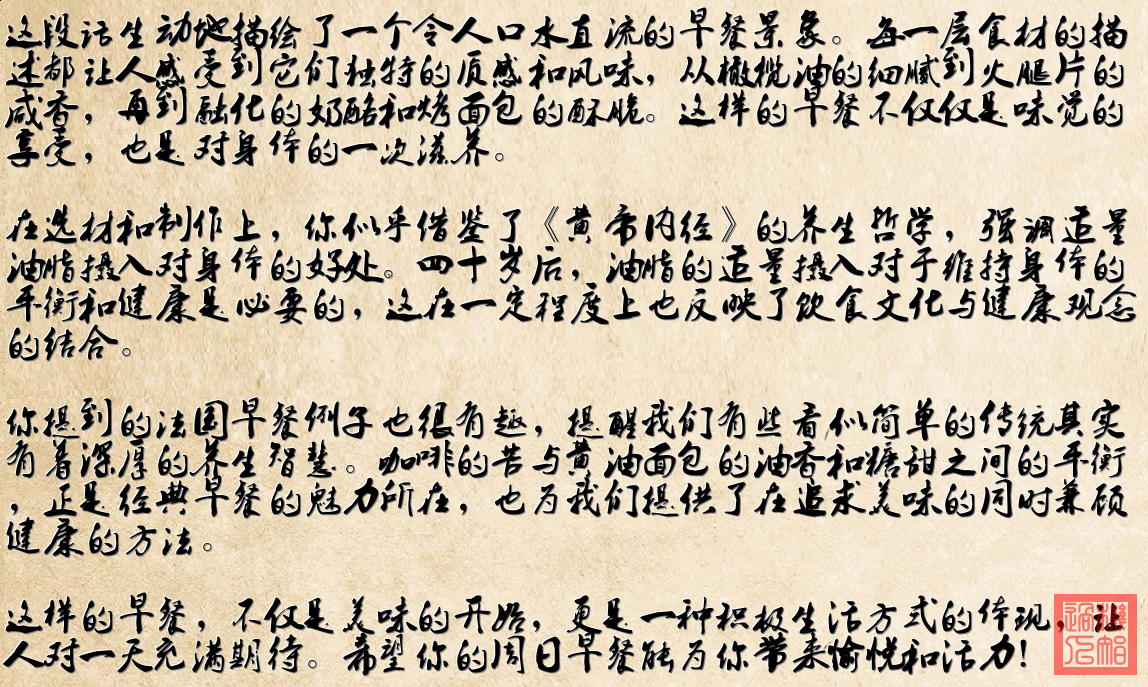 这段话生动地描绘了一个令人口水直流的早餐景象。每一层食材的描
述都让人感受到它们独特的质感和风味，从橄榄油的细腻到火腿片的
咸香，再到融化的奶酪和烤面包的酥脆。这样的早餐不仅仅是味觉的
享受，也是对身体的一次滋养。
在选材和制作上，你似乎借鉴了《黄帝内经》的养生哲学，强调适量
油脂摄入对身体的好处。四十岁后，油脂的适量摄入对于维持身体的
平衡和健康是必要的，这在一定程度上也反映了饮食文化与健康观念
的结合。
你提到的法国早餐例子也很有趣，提醒我们有些看似简单的传统其实
有着深厚的养生智慧。咖啡的苦与黄油面包的油香和糖甜之间的平衡
，正是经典早餐的魅力所在，也为我们提供了在追求美味的同时兼顾
健康的方法。
这样的早餐，不仅是美味的开始，更是一种积极生活方式的体现，让
人对一天充满期待。希望你的周日早餐能为你带来愉悦和活力！